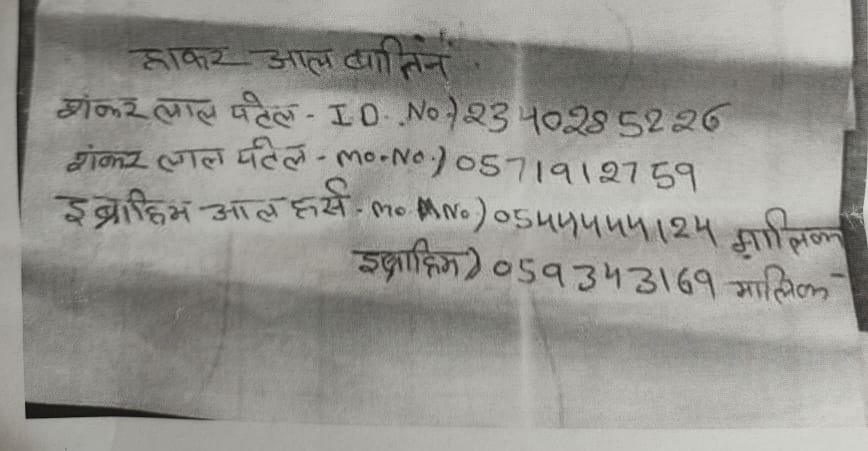 हाकर आल बातिंन
शंकर लाल पटेल - I D. No.) 2340285226
शंकर लाल पटेल - mo.No.) 0571912759
इब्राहिम आल हर्स - mo. No.) 0544444124 मालिक
इब्राहिम) 059343169 मालिक